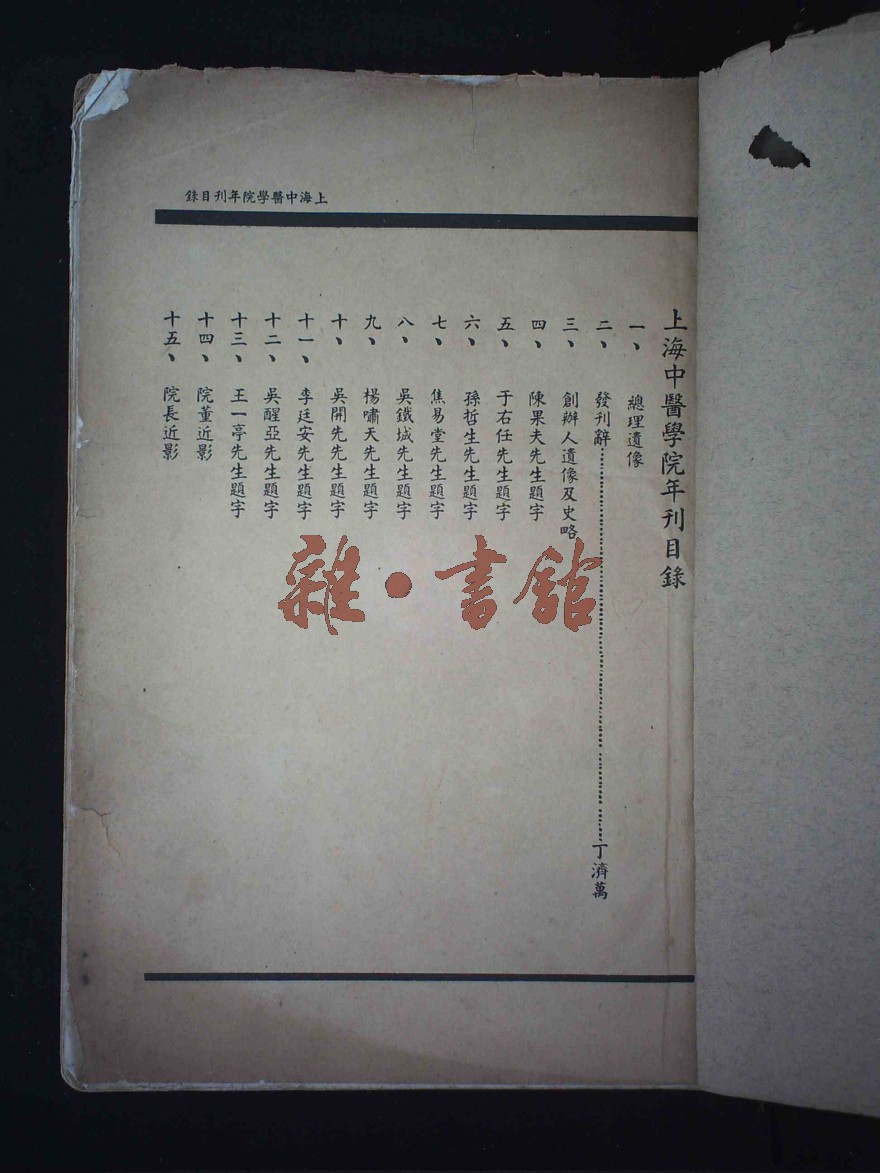 上海中醫學院年刊目錄
上海中醫學院年刊目錄
一、 總理遺像
二、 發刊辭……丁濟萬
三、 創辦人遺像及史略
四、 陳果夫先生題字
五、 于右任先生題字
六、 孫哲生先生題字
七、 焦易堂先生題字
八、 吳鐵城先生題字
九、 楊嘯天先生題字
十、 吳開先先生題字
十一、 李廷安先生題字
十二、 吳醒亞先生題字
十三、 王一亭先生題字
十四、 院董近影
十五、 院長近影
雜·書館